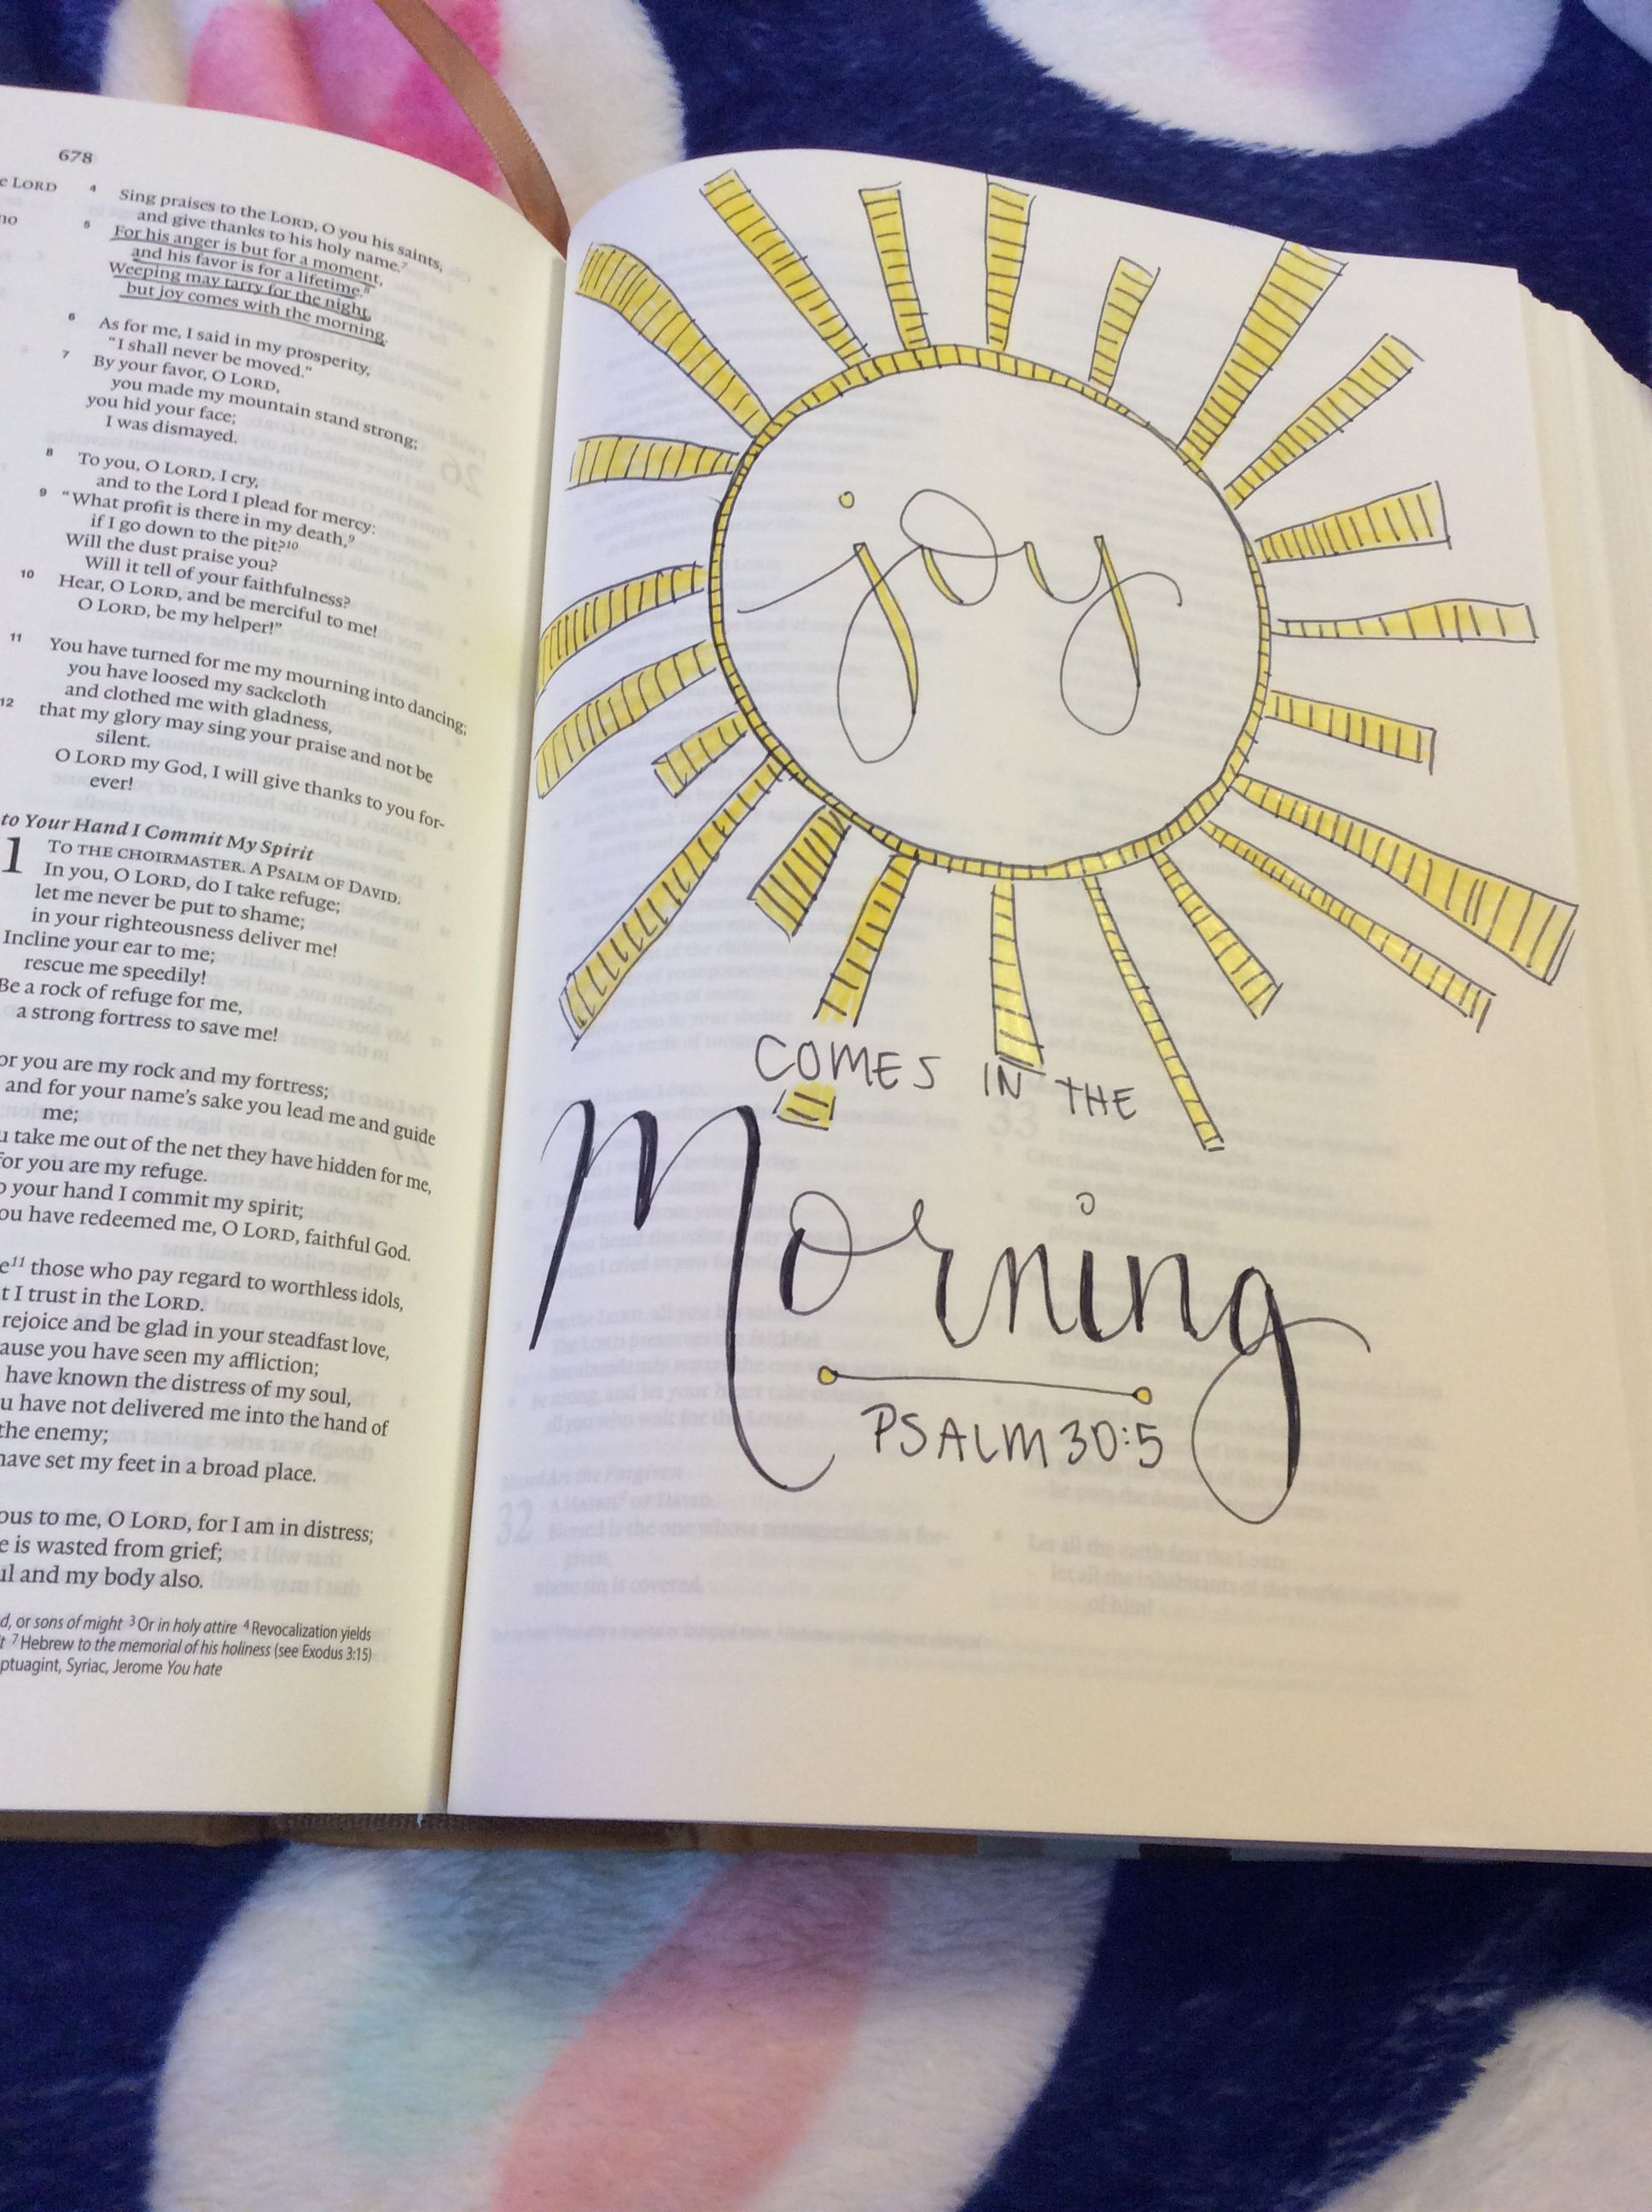 678
e LORD
no
4 Sing praises to the LORD, O you his saints,
and give thanks to his holy name.7
5 For his anger is but for a moment,
and his favor is for a lifetime.8
Weeping may tarry for the night,
but joy comes with the morning.
6 As for me, I said in my prosperity,
“I shall never be moved.”
7 By your favor, O LORD,
you made my mountain stand strong;
you hid your face;
I was dismayed.
8 To you, O LORD, I cry,
and to the Lord I plead for mercy:
9 “What profit is there in my death,9
if I go down to the pit?10
Will the dust praise you?
Will it tell of your faithfulness?
10 Hear, O LORD, and be merciful to me!
O LORD, be my helper!”
11 You have turned for me my mourning into dancing;
you have loosed my sackcloth
and clothed me with gladness,
12 that my glory may sing your praise and not be
silent.
O LORD my God, I will give thanks to you for-
ever!
to Your Hand I Commit My Spirit
1 TO THE CHOIRMASTER. A PSALM OF DAVID.
In you, O LORD, do I take refuge;
let me never be put to shame;
in your righteousness deliver me!
Incline your ear to me;
rescue me speedily!
Be a rock of refuge for me,
a strong fortress to save me!
or you are my rock and my fortress;
and for your name’s sake you lead me and guide
me;
u take me out of the net they have hidden for me,
for you are my refuge.
o your hand I commit my spirit;
ou have redeemed me, O LORD, faithful God.
e11 those who pay regard to worthless idols,
t I trust in the LORD.
rejoice and be glad in your steadfast love,
ause you have seen my affliction;
have known the distress of my soul,
u have not delivered me into the hand of
the enemy;
have set my feet in a broad place.
ous to me, O LORD, for I am in distress;
e is wasted from grief;
ul and my body also.
d, or sons of might 3 Or in holy attire 4 Revocalization yields
t 7 Hebrew to the memorial of his holiness (see Exodus 3:15)
ptuagint, Syriac, Jerome You hate
joy
COMES IN THE
Morning
PSALM 30:5
32
Blessed is the one whose transgression is for-
given,
whose sin is covered.